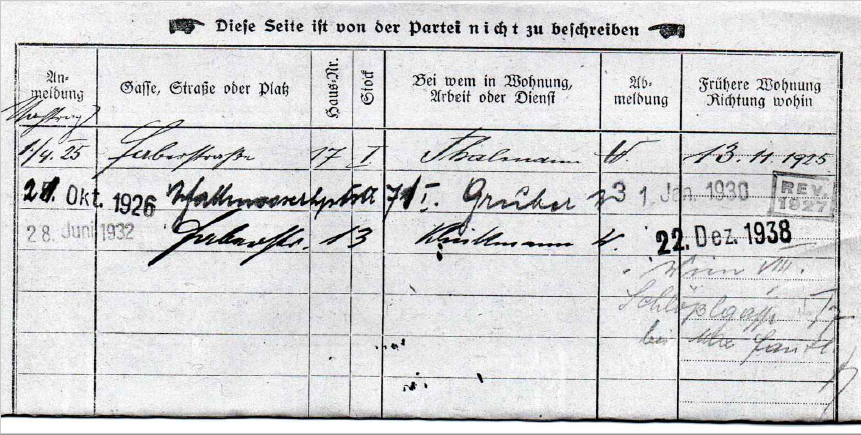 Diese Seite ist von der Partei nicht zu beschreiben
An-
meldung
Gasse, Straße oder Platz
Haus-Nr.
Stock
Bei wem in Wohnung,
Arbeit oder Dienst
Ab-
meldung
Frühere Wohnung
Richtung wohin
1/4. 25 Faberstraße 17 I Thalmann W 13.11.1925
Okt. 1926 7 I. Gruber 31 Jan. 1930 REV. 1927
28. Juni 1932 Faberstr. 13 W. 22. Dez. 1938
Wien VIII.
Schlößlgasse
bei